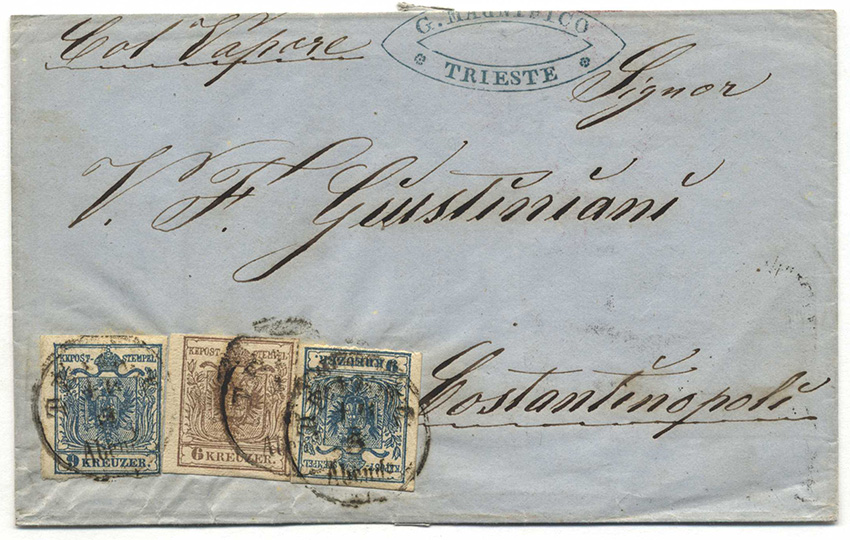 Col Vapore
G. MAGNIFICO
TRIESTE
Signor
V. F. Giustiniani
Costantinopoli
KKPOST-STEMPEL
9 KREUZER.
Abends
KKPOST-STEMPEL
6 KREUZER.
KKPOST-STEMPEL
9 KREUZER.
Abends